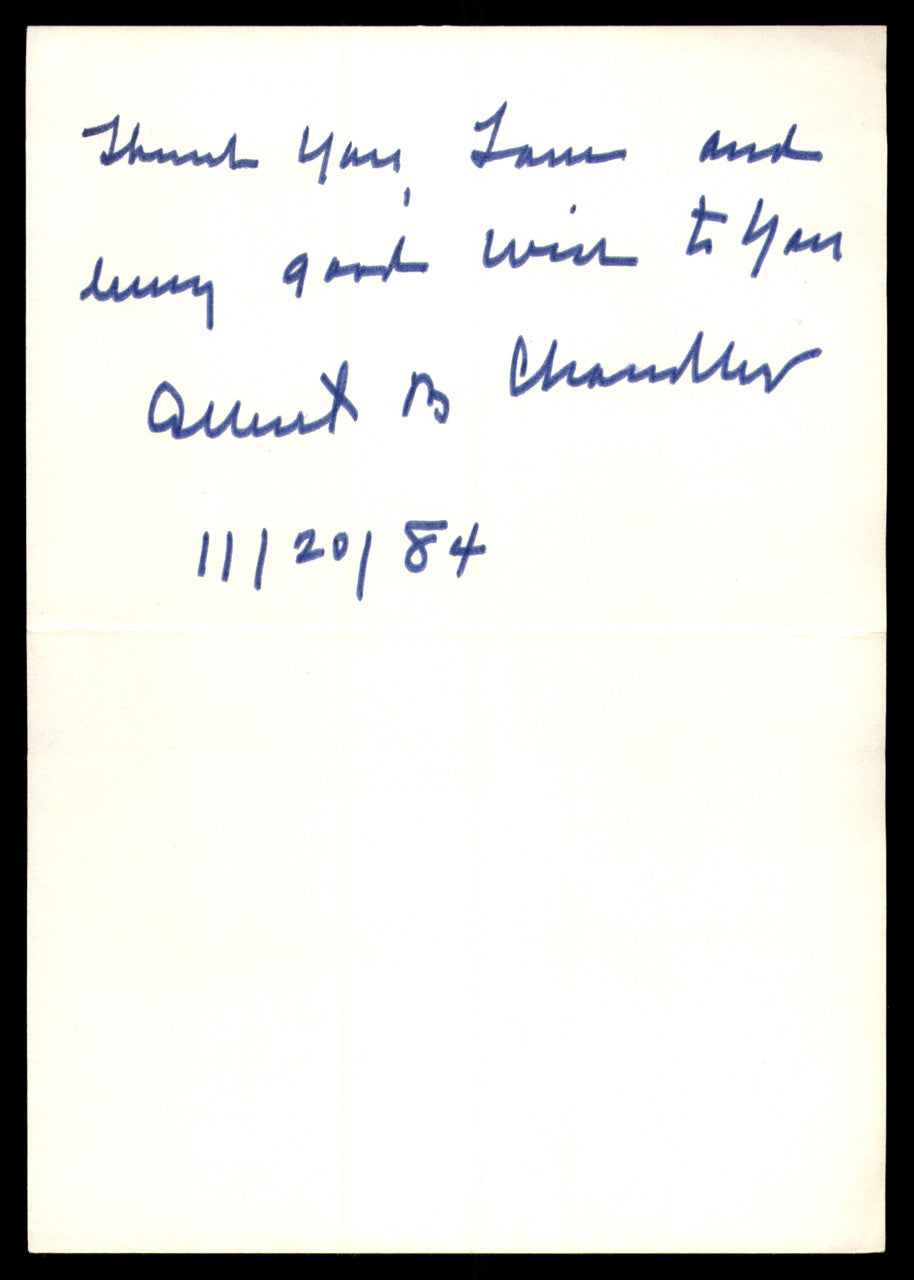 Thank you, and
every good wish to you
Albert B Chandler
11/20/84